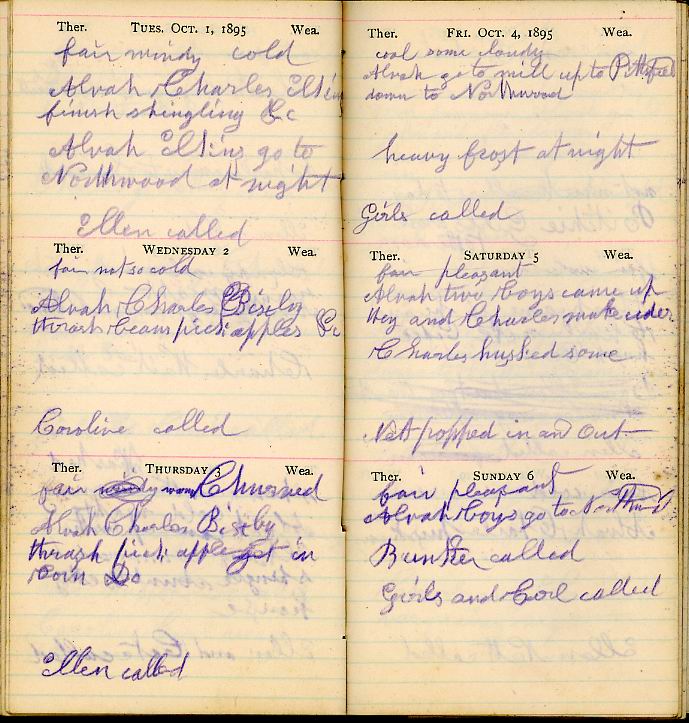 Ther. TUES. OCT. 1, 1895 Wea.
fair windy cold
Alvah Charles Elkins
finish shingling &c
Alvah Elkins go to
Northwood at night
Ellen called
Ther. WEDNESDAY 2 Wea.
fair not so cold
Alvah Charles Bixby
thrash beans pick apples &c
Caroline called
Ther. THURSDAY 3 Wea.
fair windy warm Churned
Alvah Charles Bixby
thrash pick apple get in
corn Do
Ellen called
Ther. FRI. OCT. 4, 1895 Wea.
cool some cloudy
Alvah go to mill up to Pittsfield
down to Northwood
heavy frost at night
Girls called
Ther. SATURDAY 5 Wea.
fair pleasant
Alvah two boys came up
they and Charles make cider
Charles husked some
Nett popped in and out
Ther. SUNDAY 6 Wea.
fair pleasant
Alvah boys go to
Bunker called
Girls and called